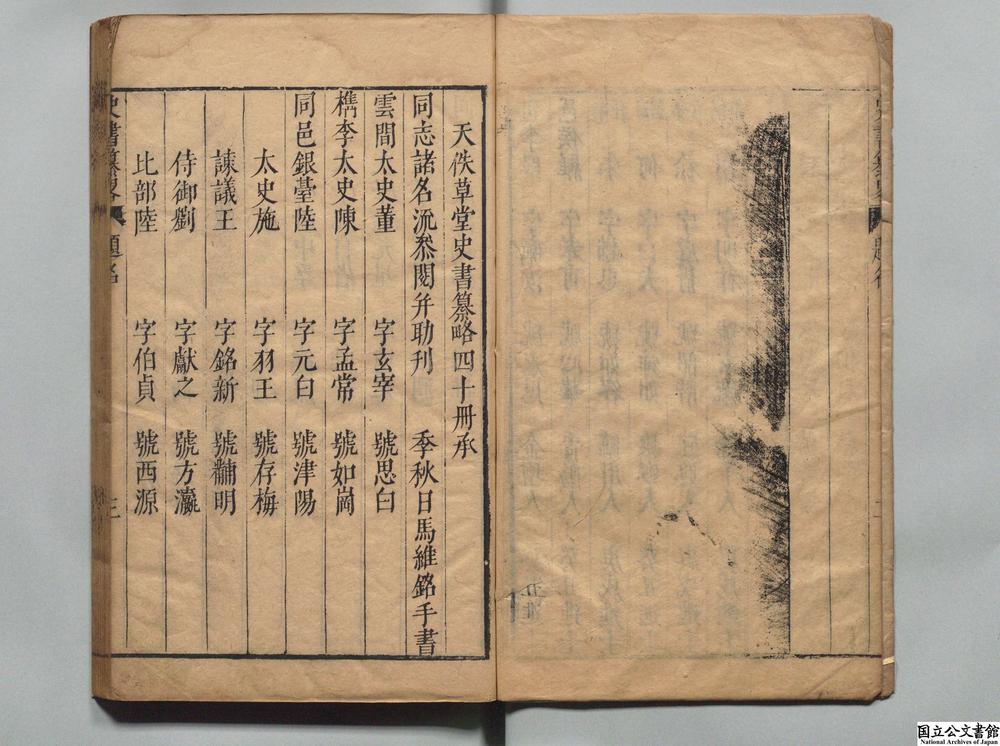 天佚草堂史書纂略四十冊承
同志諸名流叅閱弁助刊 季秋日馬維銘手書
雲間太史董 字玄宰 號思白
檇李太史陳 字孟常 號如崗
同邑銀臺陸 字元白 號津陽
太史施 字羽王 號存梅
諫議王 字銘新 號黼明
侍御劉 字獻之 號方瀛
比部陸 字伯貞 號西源
史書纂畧 題名 三
国立公文書館
National Archives of Japan